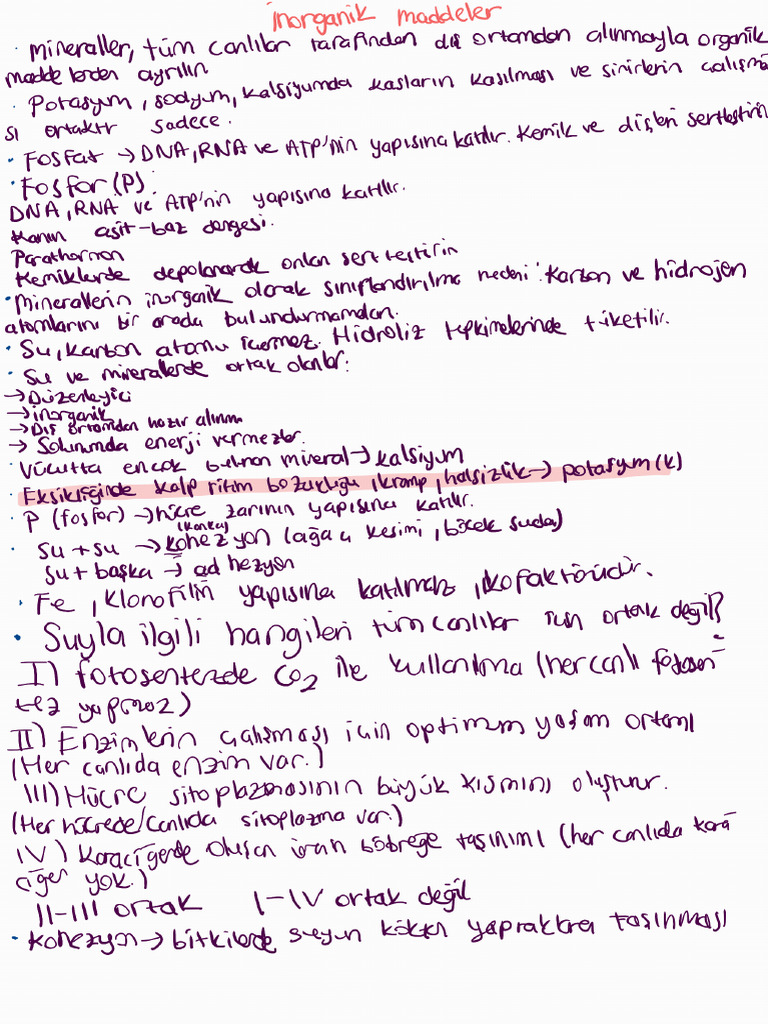 inorganik maddeler
· mineraller, tüm canlılar tarafından dış ortamdan alınmayla organik
maddelerden ayrılır
· Potasyum, sodyum, kalsiyumda kasların kasılması ve sinirlerin çalışma
sı ortaktır sadece.
· Fosfat → DNA, RNA ve ATP'nin yapısına katılır. Kemik ve dişleri sertleştirir
· Fosfor (P):
DNA, RNA ve ATP'nin yapısına katılır.
Kanın asit-baz dengesi.
Parathormon
Kemiklerde depolanarak onları sertleştirir
· Minerallerin inorganik olarak sınıflandırılma nedeni: Karbon ve hidrojen
atomlarını bir arada bulundurmamaları.
· Su, karbon atomu içermez. Hidroliz tepkimelerinde tüketilir.
· Su ve minerallerde ortak olanlar:
→ Düzenleyici
→ inorganik
→ Dış ortamdan hazır alınma
→ Solunumda enerji vermezler.
· Vücutta en çok bulunan mineral → kalsiyum
· Eksikliğinde kalp ritim bozukluğu, kramp, halsizlik → potasyum (K)
· P (fosfor) → hücre zarının yapısına katılır.
(kanka)
· su + su → kohezyon (ağaç kesimi, böcek suda)
su + başka → adhezyon
· Fe, klorofilin yapısına katılmaz, kofaktörüdür.
· Suyla ilgili hangileri tüm canlılar için ortak değil?
I) fotosentezde CO2 ile kullanılma (her canlı fotosen-
tez yapmaz)
II) Enzimlerin çalışması için optimum yaşam ortamı
(Her canlıda enzim var.)
III) Hücre sitoplazmasının büyük kısmını oluşturur.
(Her hücrede/canlıda sitoplazma var.)
IV) Karaciğerde oluşan ürenin böbreğe taşınımı (her canlıda kara
ciğer yok.)
II-III ortak I-IV ortak değil
· Kohezyon → bitkilerde suyun kökten yapraklara taşınması